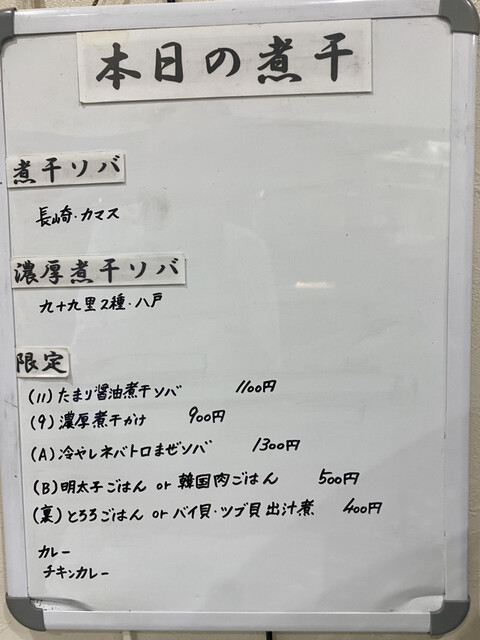 本日の煮干
煮干ソバ
長崎・カマス
濃厚煮干ソバ
九十九里2種・八戸
限定
(11) たまり醤油煮干ソバ 1100円
(9) 濃厚煮干かけ 900円
(A) 冷やしネバトロまぜソバ 1300円
(B) 明太子ごはん or 韓国肉ごはん 500円
(裏) とろろごはん or バイ貝・ツブ貝出汁煮 400円
カレー
チキンカレー